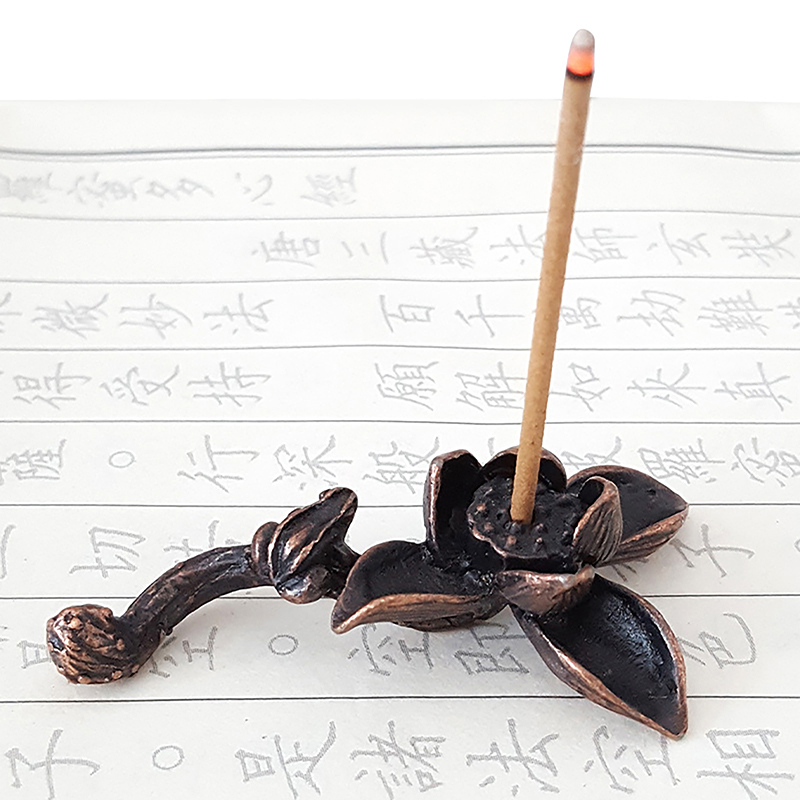 羅蜜多心經
唐三藏法師玄奘
微妙法 百千萬劫難
得受持 願解如來真
薩。行深般 羅蜜
一切 子
是空。空即 色
子。是諸法空相